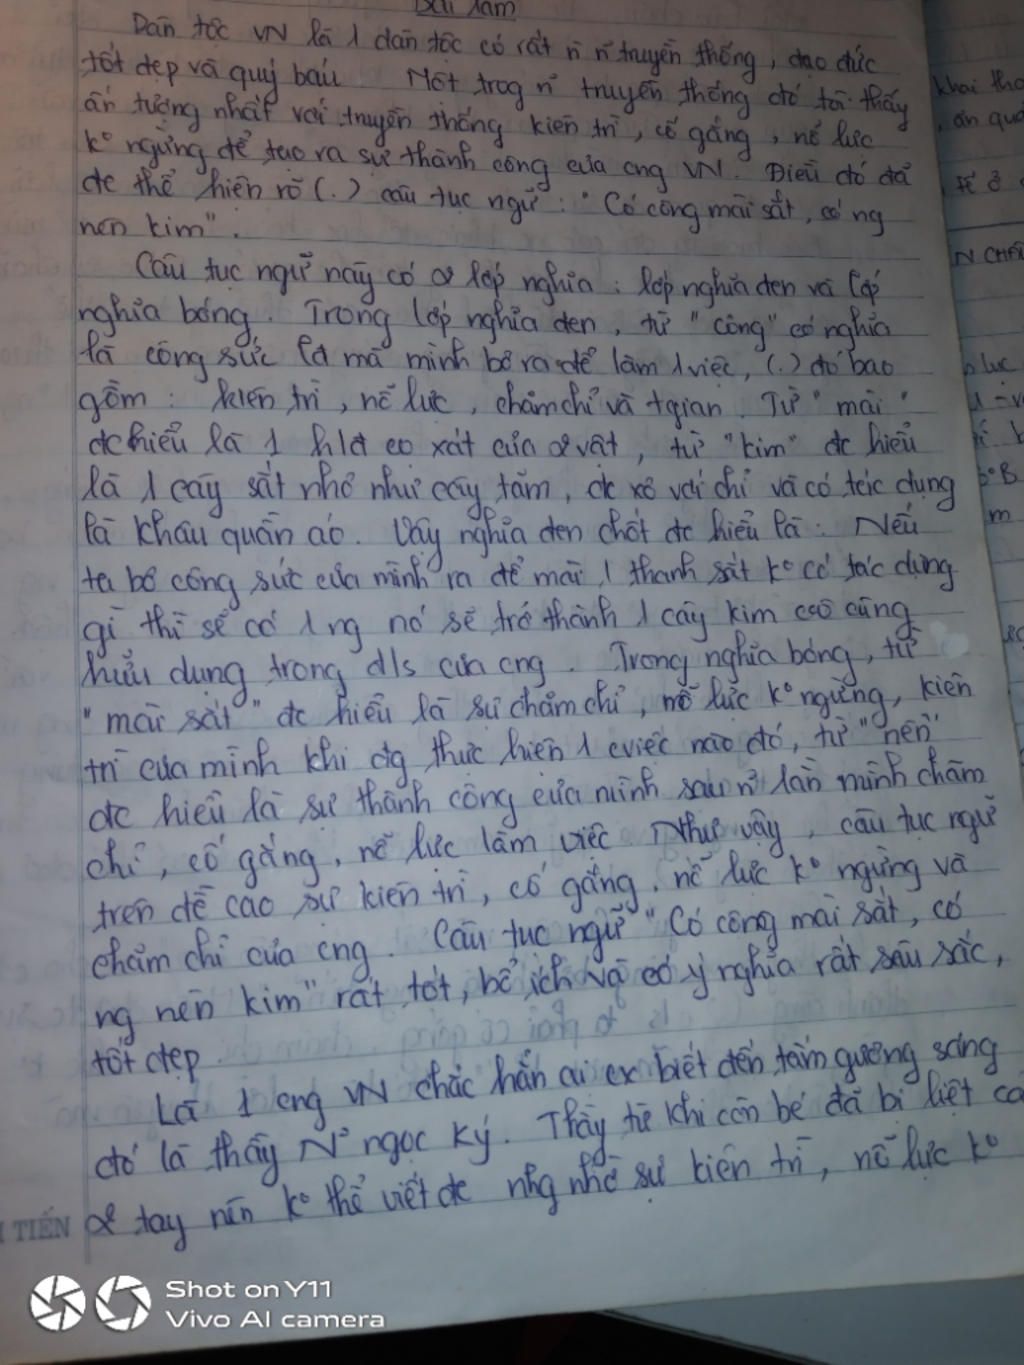 Bài làm
Dân tộc VN là 1 dân tộc có rất n̄ n̄ truyền thống, đạo đức
tốt đẹp và quý báu Một trog n̄ truyền thống đó tôi thấy
ấn tượng nhất với truyền thống kiên trì, cố gắng, nổ lực
k° ngừng để tạo ra sự thành công của cng VN. Điều đó đã
đc thể hiện rõ (.) câu tục ngữ: "Có công mài sắt, có ng
nên kim".
Câu tục ngữ này có 2 lớp nghĩa: lớp nghĩa đen và lớp
nghĩa bóng. Trong lớp nghĩa đen, từ "công" có nghĩa
là công sức lđ mà mình bỏ ra để làm 1 việc, (.) đó bao
gồm: kiên trì, nỗ lực, chăm chỉ và tgian. Từ "mài"
đc hiểu là 1 hđ cọ xát của 2 vật, từ "kim" đc hiểu
là 1 cây sắt nhỏ như cây tăm, đc xỏ với chỉ và có tác dụng
là khâu quần áo. Vậy nghĩa đen chốt đc hiểu là: Nếu
ta bỏ công sức của mình ra để mài 1 thanh sắt k° có tác dụng
gì thì sẽ có 1 ng nó sẽ trở thành 1 cây kim vô cùng
hữu dụng trong đ/s của cng. Trong nghĩa bóng, từ
"mài sắt" đc hiểu là sự chăm chỉ, nỗ lực k° ngừng, kiên
trì của mình khi đg thực hiện 1 cviệc nào đó, từ "nên"
đc hiểu là sự thành công của mình sau n̄ lần mình chăm
chỉ, cố gắng, nỗ lực làm việc. Như vậy, câu tục ngữ
trên đề cao sự kiên trì, cố gắng, nỗ lực k° ngừng và
chăm chỉ của cng. Câu tục ngữ "Có công mài sắt, có
ng nên kim" rất tốt, bổ ích và có ý nghĩa rất sâu sắc,
tốt đẹp
Là 1 cng VN chắc hẳn ai cx biết đến tấm gương sáng
đó là thầy N° ngọc Ký. Thầy từ khi còn bé đã bị liệt cả
2 tay nên k° thể viết đc nhg nhờ sự kiên trì, nỗ lực k°
TIẾN
khai thá
, ăn quá
N CHẤ
Shot on Y11
Vivo AI camera